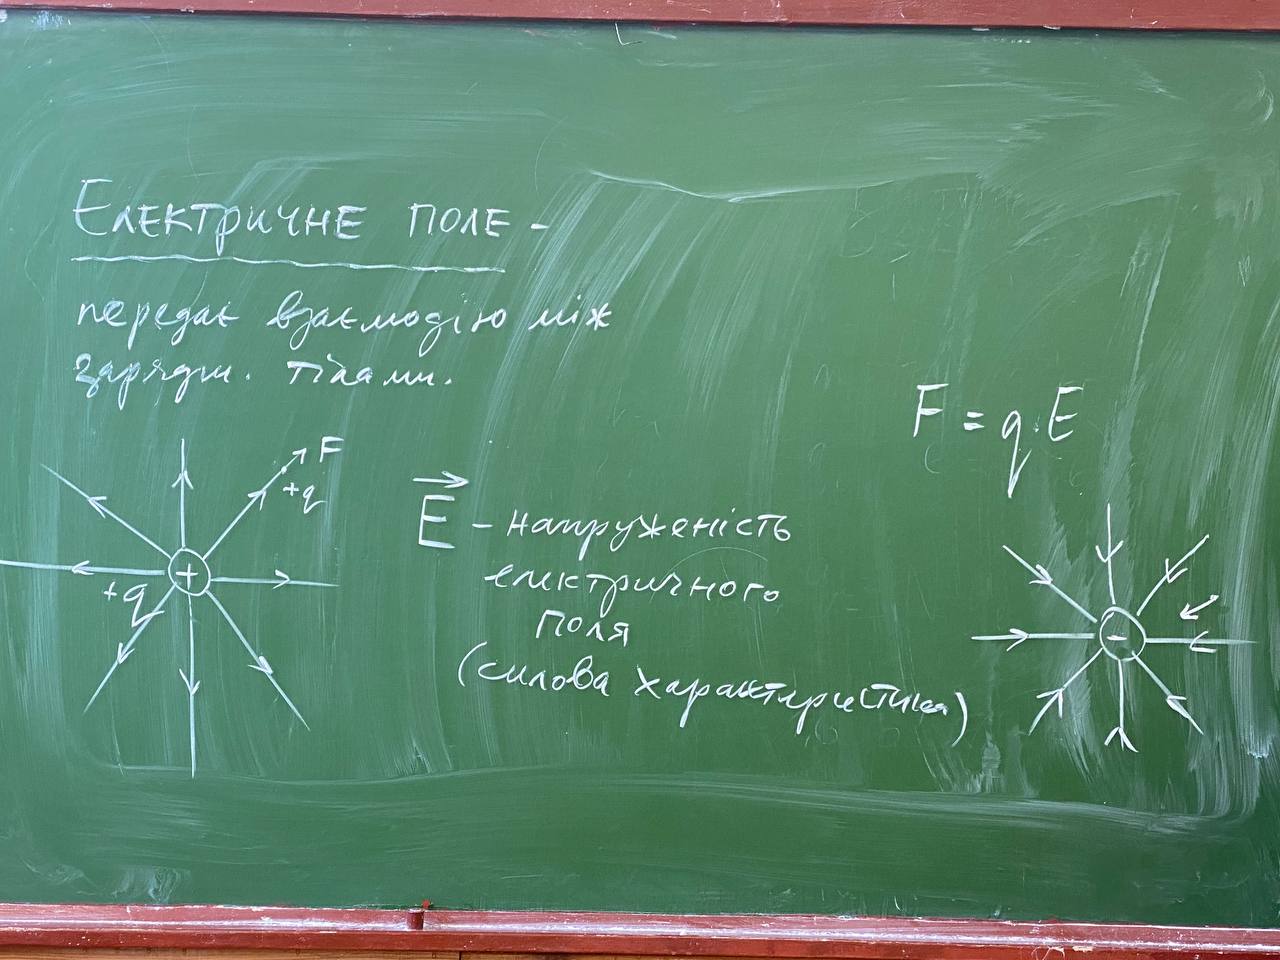 Електричне поле -
передає взаємодію між
зарядж. тілами.
F
+q
+
+q
E - напруженість
електричного
поля
(силова характеристика)
F = q · E
-